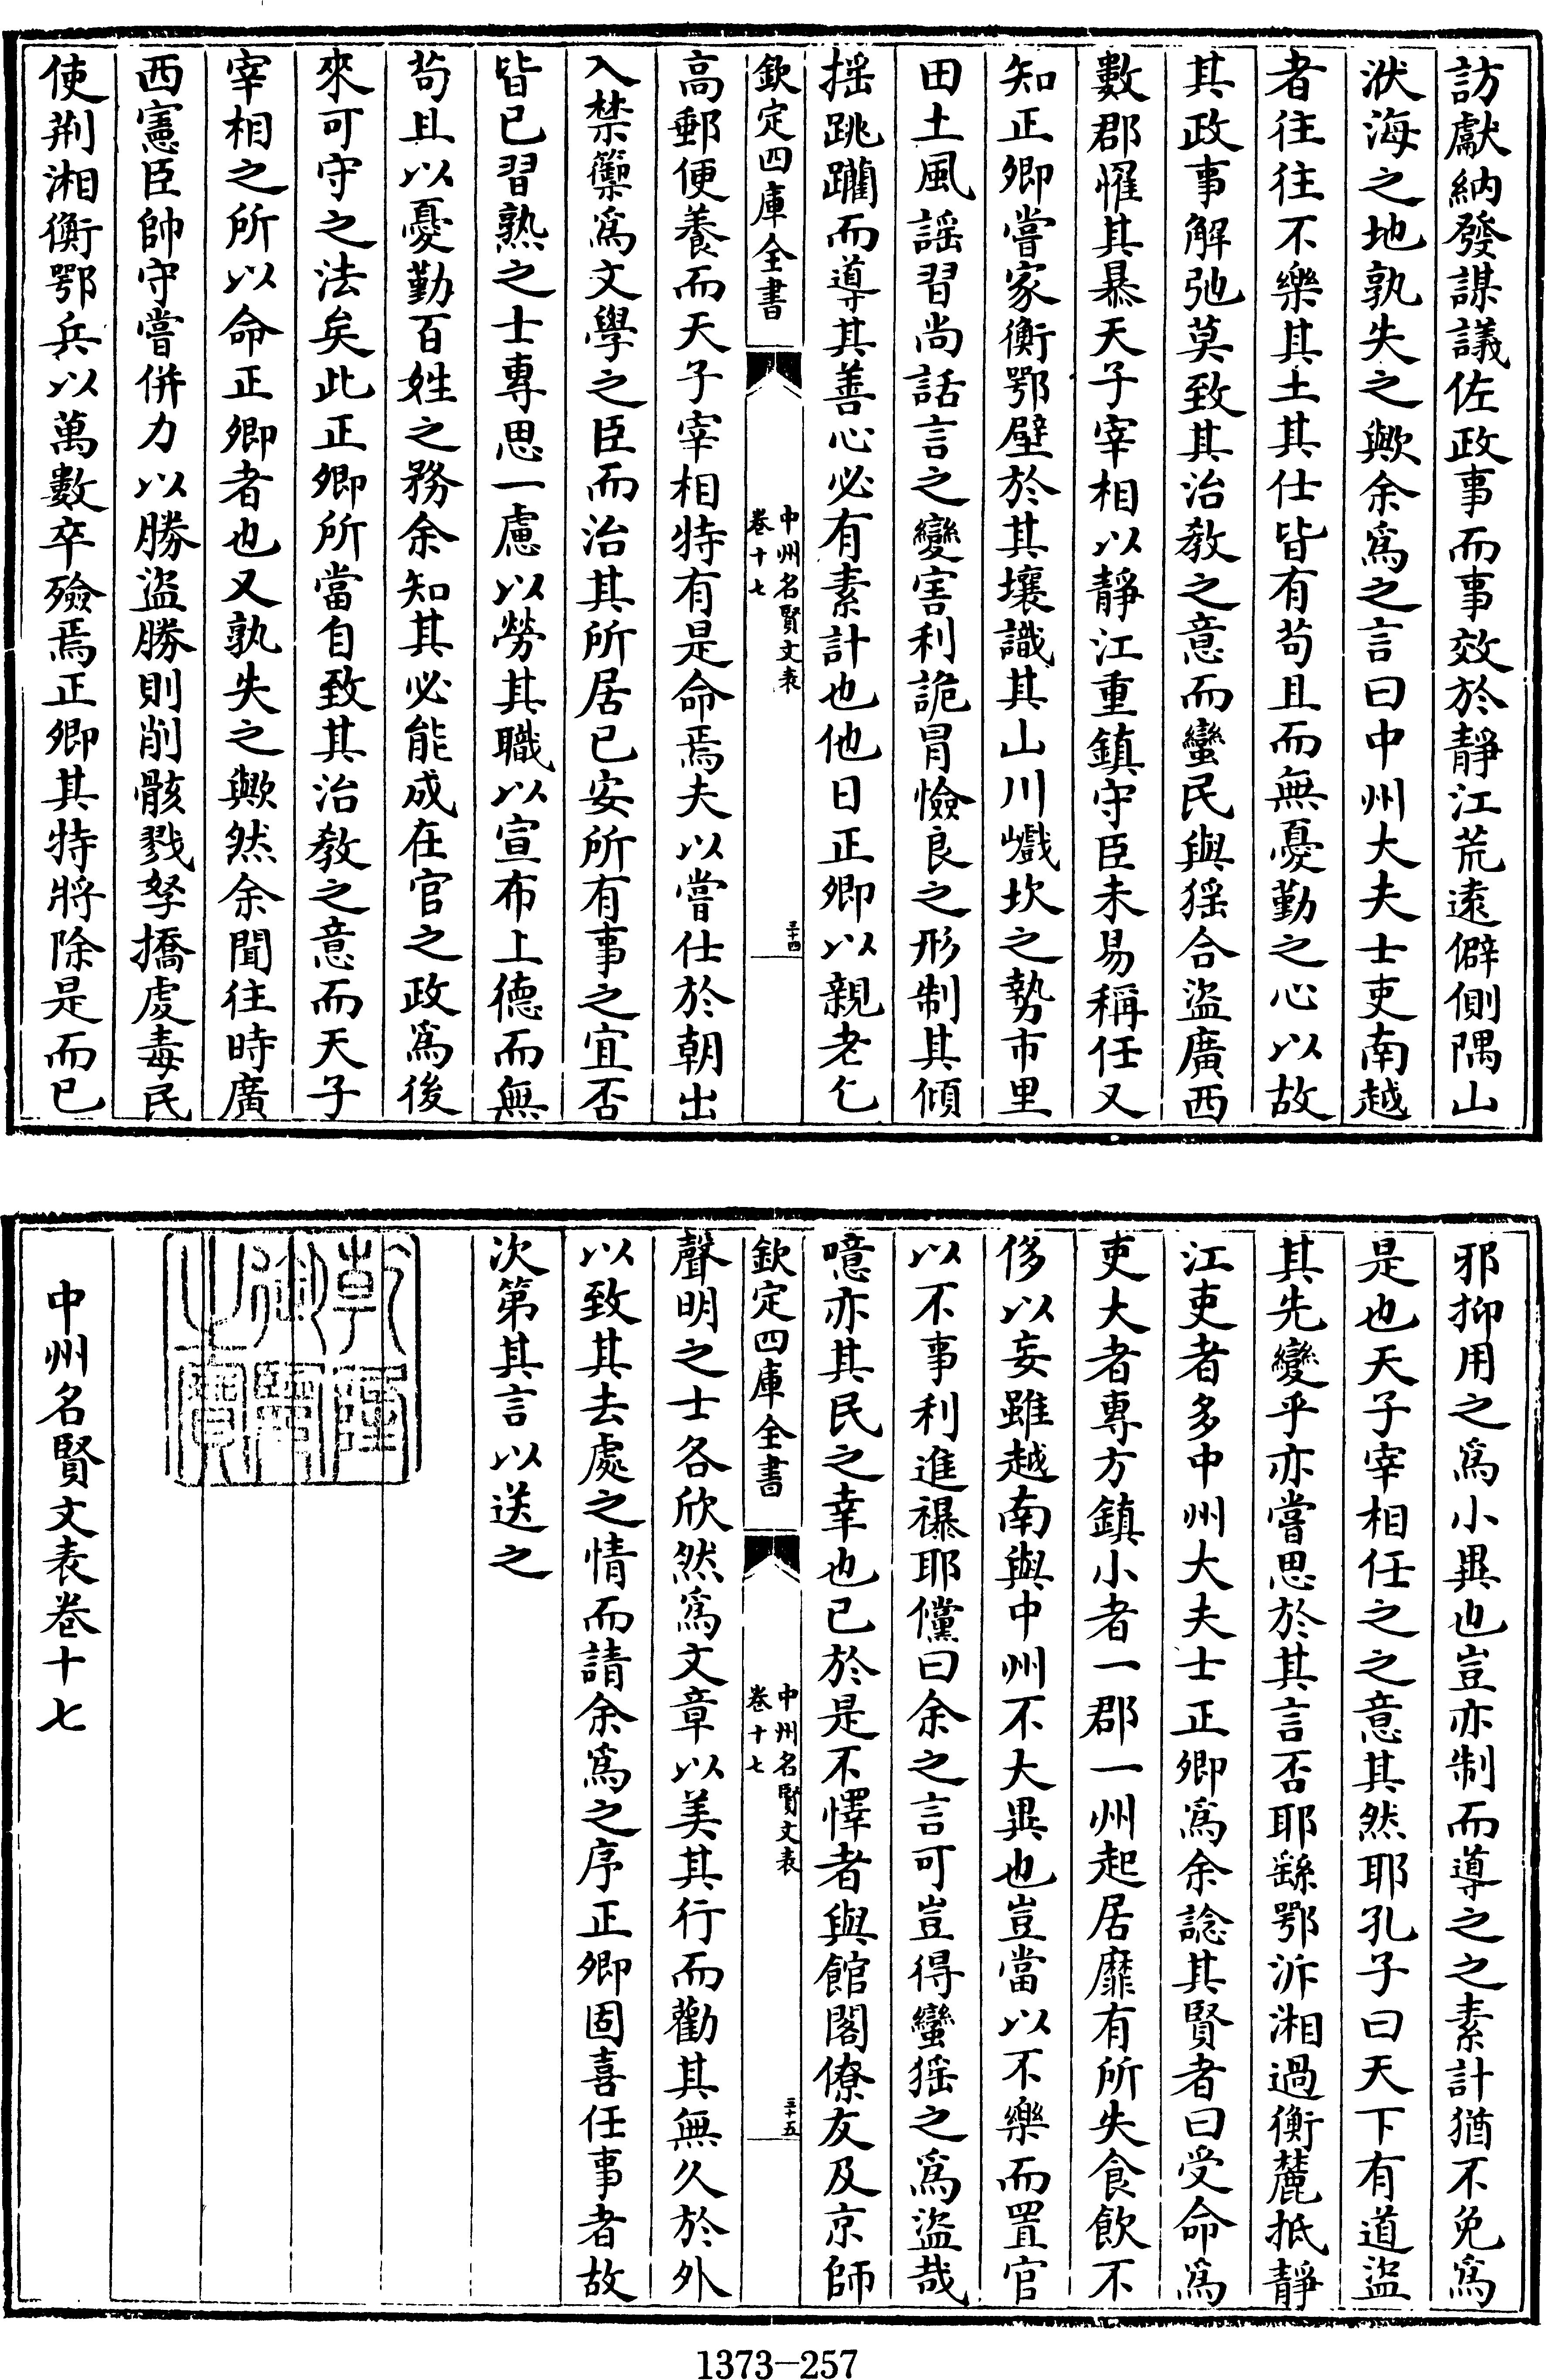 訪獻納發謀議佐政事而事效於靜江荒遠僻側隅山
洑海之地孰失之歟余爲之言曰中州大夫士吏南越
者往往不樂其土其仕皆有苟且而無憂勤之心以故
其政事解弛莫致其治敎之意而蠻民與猺合盜廣西
數郡懼其暴天子宰相以靜江重鎮守臣未易稱任又
知正卿嘗家衡鄂壁於其壤識其山川巇坎之勢市里
田土風謠習尚話言之變害利詭冐憸良之形制其傾
揺跳躪而導其善心必有素計也他日正卿以親老乞
欽定四庫全書
中州名賢文表
卷十七
三十四
高郵便養而天子宰相特有是命焉夫以嘗仕於朝出
入禁籞爲文學之臣而治其所居已安所有事之宜否
皆已習熟之士專思一慮以勞其職以宣布上德而無
苟且以憂勤百姓之務余知其必能成在官之政爲後
來可守之法矣此正卿所當自致其治敎之意而天子
宰相之所以命正卿者也又孰失之歟然余聞往時廣
西憲臣帥守嘗併力以勝盜勝則削骸戮孥撟虔毒民
使荆湘衡鄂兵以萬數卒殮焉正卿其特將除是而已
邪抑用之爲小異也豈亦制而導之之素計猶不免爲
是也天子宰相任之之意其然耶孔子曰天下有道盜
其先變乎亦嘗思於其言否耶繇鄂泝湘過衡麓抵靜
江吏者多中州大夫士正卿爲余諗其賢者曰受命爲
吏大者專方鎮小者一郡一州起居靡有所失食飲不
侈以妄雖越南與中州不大異也豈當以不樂而置官
以不事利進襮耶儻曰余之言可豈得蠻猺之爲盜哉
噫亦其民之幸也已於是不懌者與館閣僚友及京師
欽定四庫全書
中州名賢文表
卷十七
三十五
聲明之士各欣然爲文章以美其行而勸其無久於外
以致其去處之情而請余爲之序正卿固喜任事者故
次第其言以送之
乾隆
御覽
之寶
中州名賢文表卷十七
1373-257